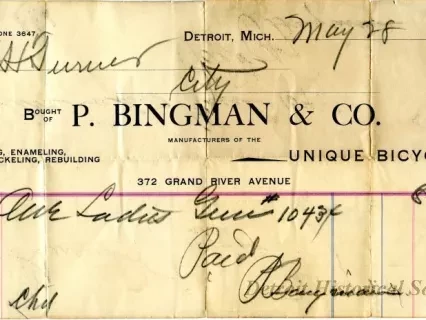 ONE 3647
DETROIT, MICH. May 28
H Turner
City
BOUGHT OF P. BINGMAN & CO.
MANUFACTURERS OF THE
G, ENAMELING,
CKELING, REBUILDING
UNIQUE BICYC
372 GRAND RIVER AVENUE
One Ladies Gem # 10434
Paid
P Bingman
Detroit Historical So
Chd